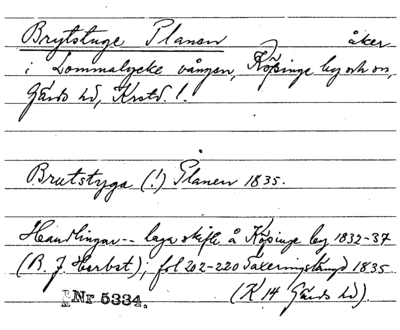 Brytstuge Planen åker
i Lommalycke vången, Köpinge by och sn,
Gärds hd, Krstd. l.
Brutstyga (!) Planen 1835.
Handlingar -- laga skifte å Köpinge by 1832-37
(B. J. Herbst); fol 202-220 Taxeringslängd 1835
(K 14 Gärds hd).
Nr 5334.